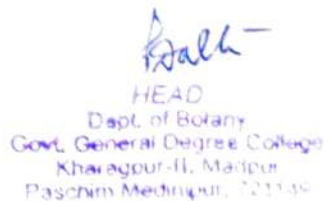 HEAD
Dept. of Botany
Govt. General Degree College
Kharagpur-II, Madpur
Paschim Medinipur, 721149